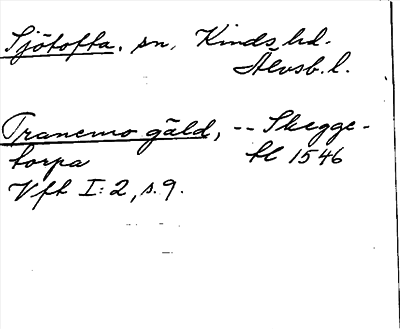 Sjötofta, sn, Kinds hd.
Älvsb. l.
Tranemo gäld, -- Skegge-
torpa tl 1546
Vft I: 2, s. 9.